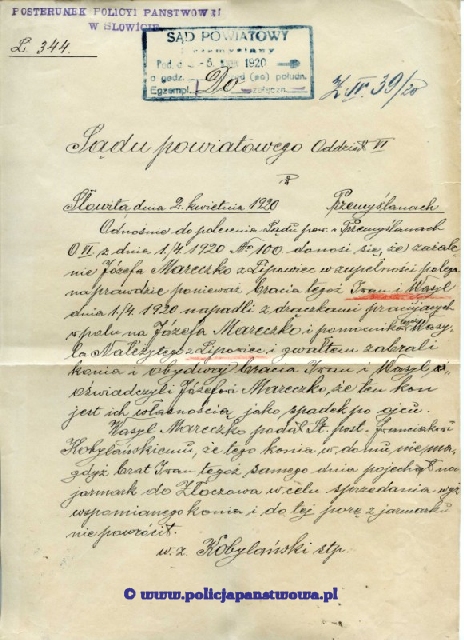 POSTERUNEK POLICYI PAŃSTWOWEJ
W SŁOWICIE
L. 344.
SĄD POWIATOWY
Przemyślany
Pod d. 5. 1920
o godz. (po) połudn.
Egzempl. załącz.
Do
Z. IV. 39/20
Sądu powiatowego Oddział VI
w
Słowita dnia 2. kwietnia 1920 Przemyślanach
Odnośnie do polecenia Sądu pow. w Przemyślanach
O VI z dnia 1/4 1920 Nr 100 donosi się, że zażale
nie Józefa Mareczko z Lipowiec w zupełności polega
na prawdzie ponieważ bracia tegoż Iwan i Wasyl
dnia 1/4. 1920 napadli z pracujących
w polu na Józefa Mareczko i pomocnika Wasy
la z Lipowiec i gwałtem zabrali
konia i obydwaj bracia Iwan i Wasyl
oświadczyli Józefowi Mareczko, że ten koń
jest ich własnością jako spadek po ojcu.
Wasyl Mareczko podał St. post. Franciszkowi
Kobylańskiemu, że tego konia w domu nie ma,
gdyż brat Iwan tegoż samego dnia pojechał na
jarmark do Złoczowa w celu sprzedania wyż
wspomnianego konia i do tej pory z jarmarku
nie powrócił.
w.z. Kobylański stp.
© www.policjapanstwowa.pl